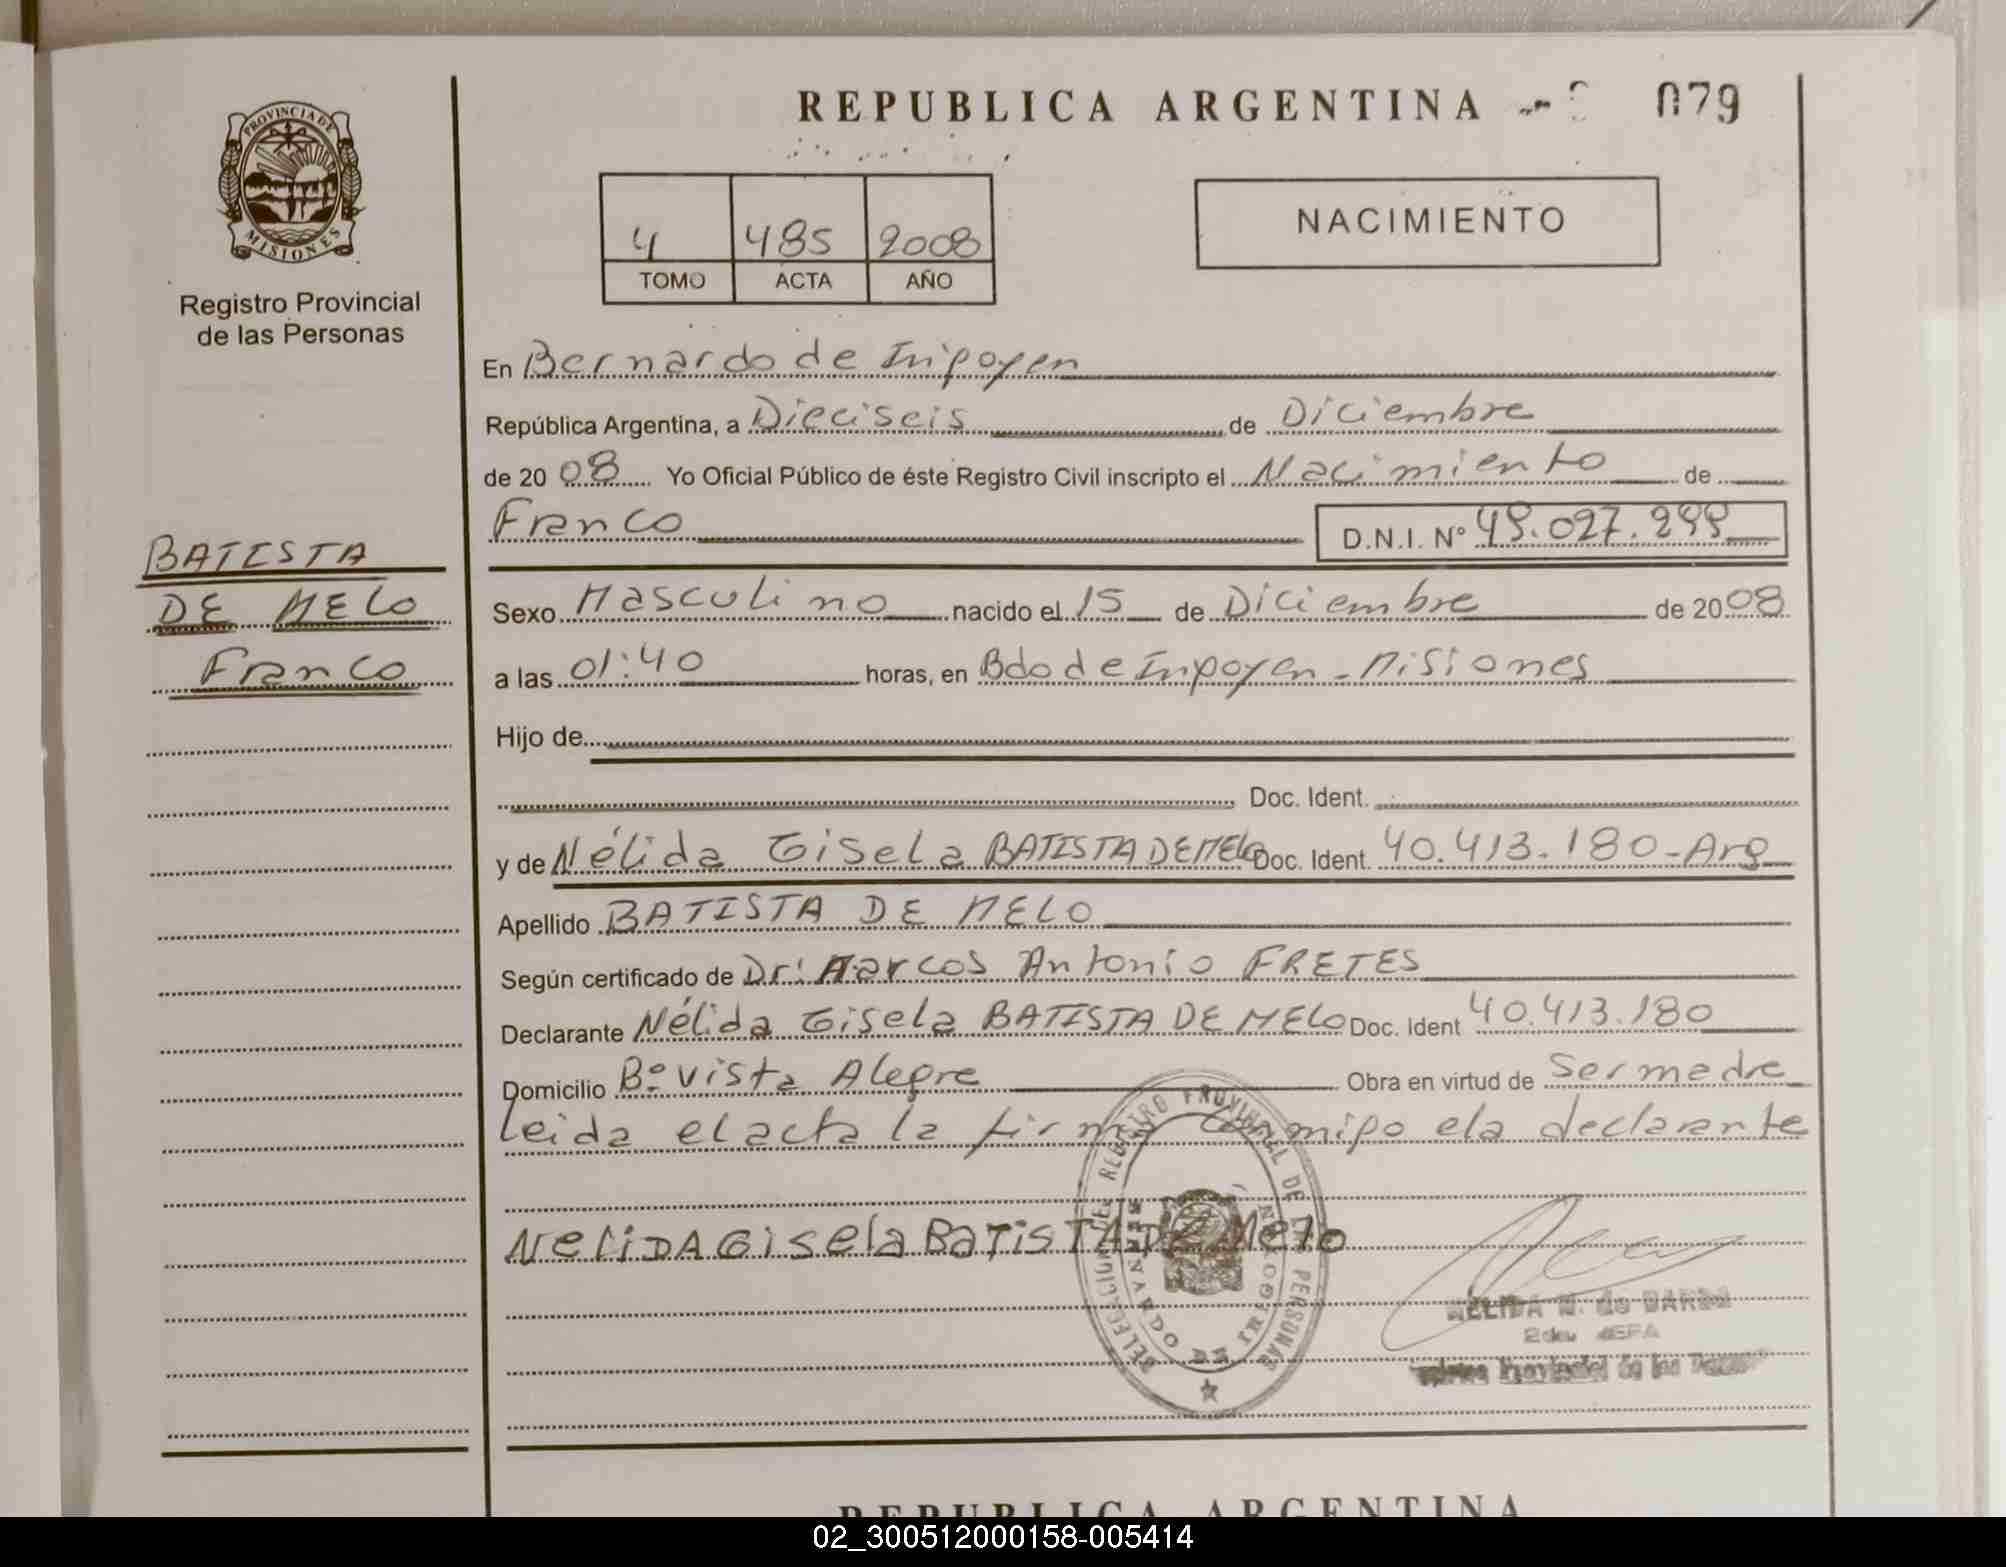 REPUBLICA ARGENTINA
079
PROVINCIA DE
MISIONES
Registro Provincial
de las Personas
4 485 2008
TOMO ACTA AÑO
NACIMIENTO
En Bernardo de Irigoyen
República Argentina, a Dieciseis de Diciembre
de 20 08 Yo Oficial Público de éste Registro Civil inscripto el Nacimiento de
Franco D.N.I. Nº
BATISTA
DE MELO
Franco
Sexo Masculino nacido el 15 de Diciembre de 20 08
a las 01:40 horas, en Bdo de Irigoyen - Misiones
Hijo de
Doc. Ident.
y de Nélida Gisela BATISTA DE MELO Doc. Ident. 40.413.180 - Arg
Apellido BATISTA DE MELO
Según certificado de Dr: Marcos Antonio FRETES
Declarante Nélida Gisela BATISTA DE MELO Doc. Ident 40.413.180
Domicilio Bº Vista Alegre Obra en virtud de Ser madre
Leida el acta la firma conmigo ela declarante
NeLiDA Gisela BaTisTA DE Melo
DELEGACION DEL REGISTRO PROVINCIAL DE PERSONAS
BERNARDO DE IRIGOYEN
NELIDA de
JEFA
Provincial de las
REPUBLICA ARGENTINA
02_300512000158-005414